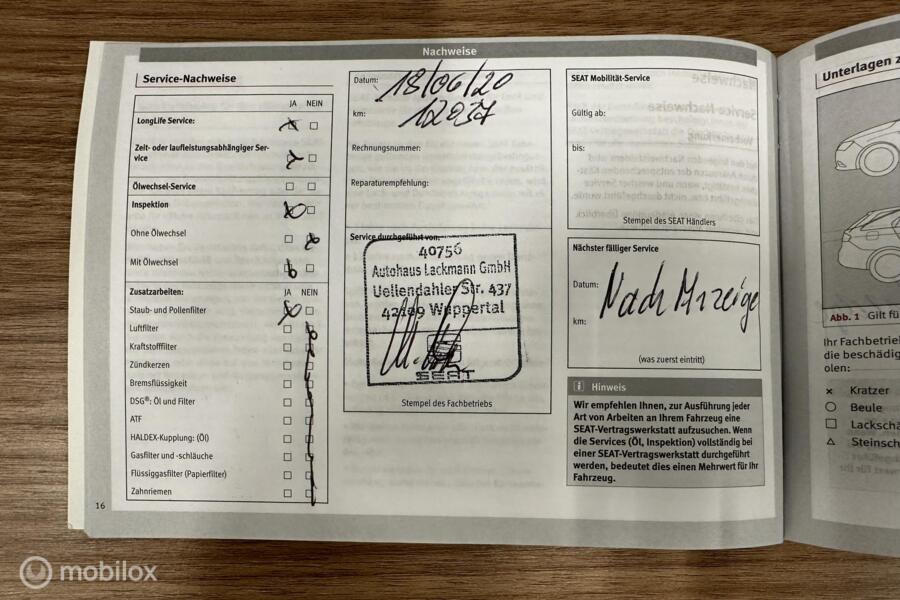 Nachweise
Service-Nachweise
JA NEIN
LongLife Service:
Zeit- oder laufleistungsabhängiger Ser-
vice
Ölwechsel-Service
Inspektion
Ohne Ölwechsel
Mit Ölwechsel
Zusatzarbeiten: JA NEIN
Staub- und Pollenfilter
Luftfilter
Kraftstofffilter
Zündkerzen
Bremsflüssigkeit
DSG®: Öl und Filter
ATF
HALDEX-Kupplung: (Öl)
Gasfilter und -schläuche
Flüssiggasfilter (Papierfilter)
Zahnriemen
16
Datum: 18/06/20
km: 12037
Rechnungsnummer:
Reparaturempfehlung:
Service durchgeführt von:
40756
Autohaus Lackmann GmbH
Uellendahler Str. 437
42109 Wuppertal
SEAT
Stempel des Fachbetriebs
SEAT Mobilität-Service
Gültig ab:
bis:
Stempel des SEAT Händlers
Nächster fälliger Service
Datum: Nach Anzeige
km:
(was zuerst eintritt)
i Hinweis
Wir empfehlen Ihnen, zur Ausführung jeder
Art von Arbeiten an Ihrem Fahrzeug eine
SEAT-Vertragswerkstatt aufzusuchen. Wenn
die Services (Öl, Inspektion) vollständig bei
einer SEAT-Vertragswerkstatt durchgeführt
werden, bedeutet dies einen Mehrwert für Ihr
Fahrzeug.
Unterlagen
Abb. 1 Gilt fü
Ihr Fachbetrieb
die beschädig
olen:
Kratzer
Beule
Lackschä
Steinsch
mobilox